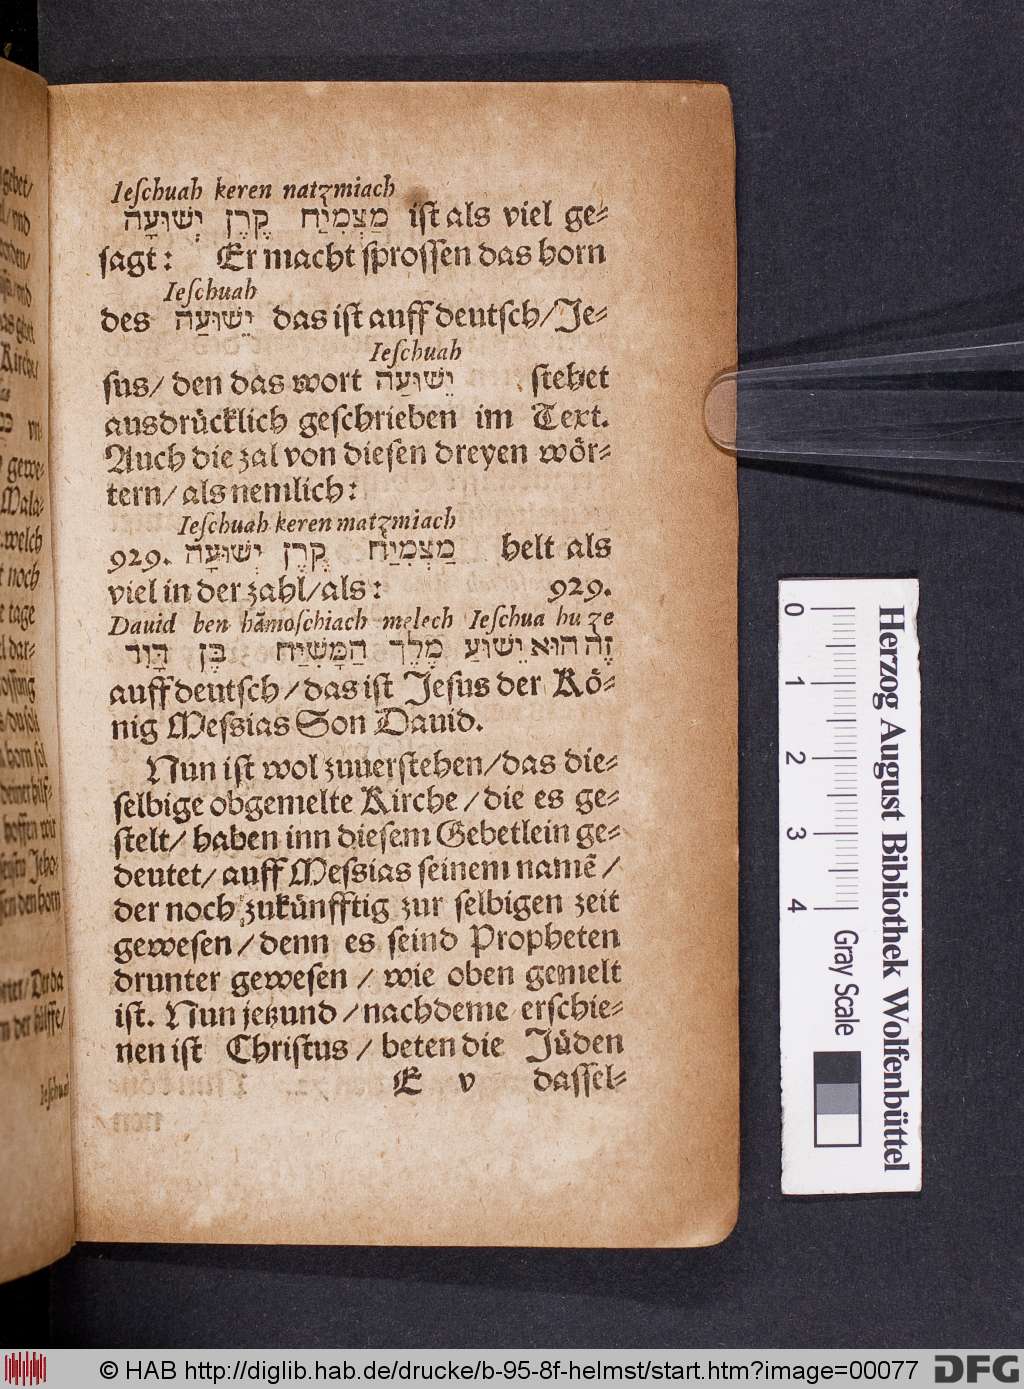 Ieſchuah keren natzmiach
מַצְמִיַח קֶרֶן יְשׁוּעָה iſt als viel ge⸗
ſagt: Er macht ſproſſen das horn
Ieſchuah
des יֵשׁוּעַה das iſt auff deutſch/Je⸗
Ieſchuah
ſus/ den das wort יֵשׁוּעַה ſtehet
ausdrücklich geſchrieben im Text.
Auch die zal von dieſen dreyen wör⸗
tern/ als nemlich:
Ieſchuah keren matzmiach
929. מַצְמִיַח קֶרֶן יְשׁוּעָה helt als
viel in der zahl/als: 929.
Dauid ben hãmoſchiach melech Ieſchua hu ze
זֶה הוּא יֵשׁוּעַ מֶלֶךְ הַמָּשִׁיַח בֶּן דָּוִד
auff deutſch/das iſt Jeſus der Kö⸗
nig Meſsias Son Dauid.
Nun iſt wol zuuerſtehen/das die⸗
ſelbige obgemelte Kirche/die es ge⸗
ſtelt/ haben inn dieſem Gebetlein ge⸗
deutet/ auff Meſsias ſeinem namẽ/
der noch zukünfftig zur ſelbigen zeit
geweſen/denn es ſeind Propheten
drunter geweſen/ wie oben gemelt
iſt. Nun jetzund/nachdeme erſchie⸗
nen iſt Chriſtus/ beten die Jüden
E v daſſel⸗
Herzog August Bibliothek Wolfenbüttel
0 1 2 3 4
Gray Scale
© HAB http://diglib.hab.de/drucke/b-95-8f-helmst/start.htm?image=00077
DFG